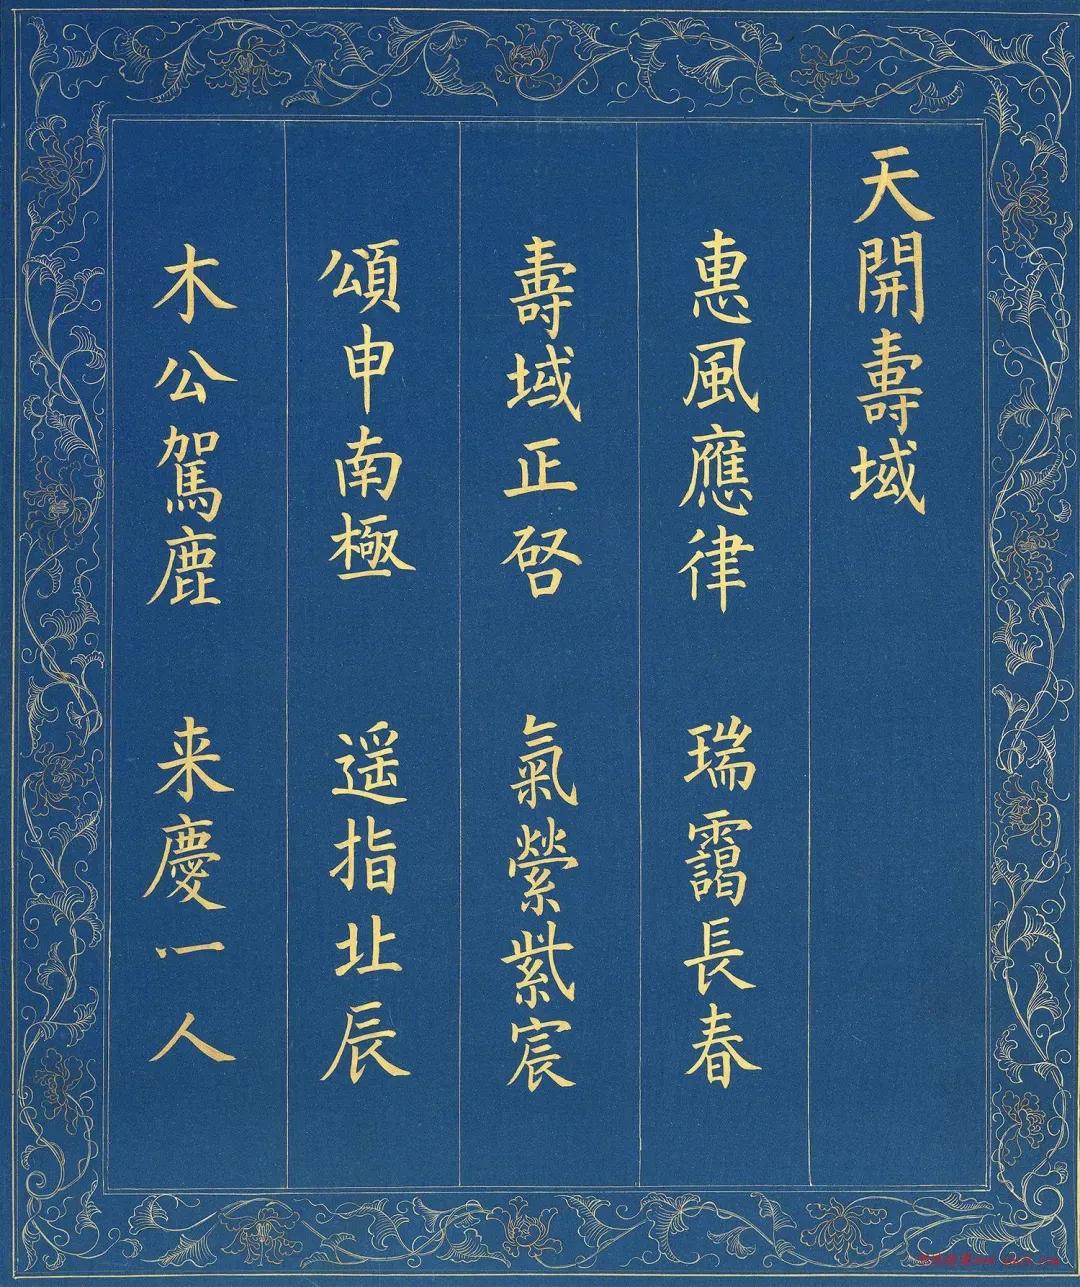 天開壽域
惠風應律 瑞靄長春
壽域正啓 氣縈紫宸
頌申南極 遥指北辰
木公駕鹿 来慶一人